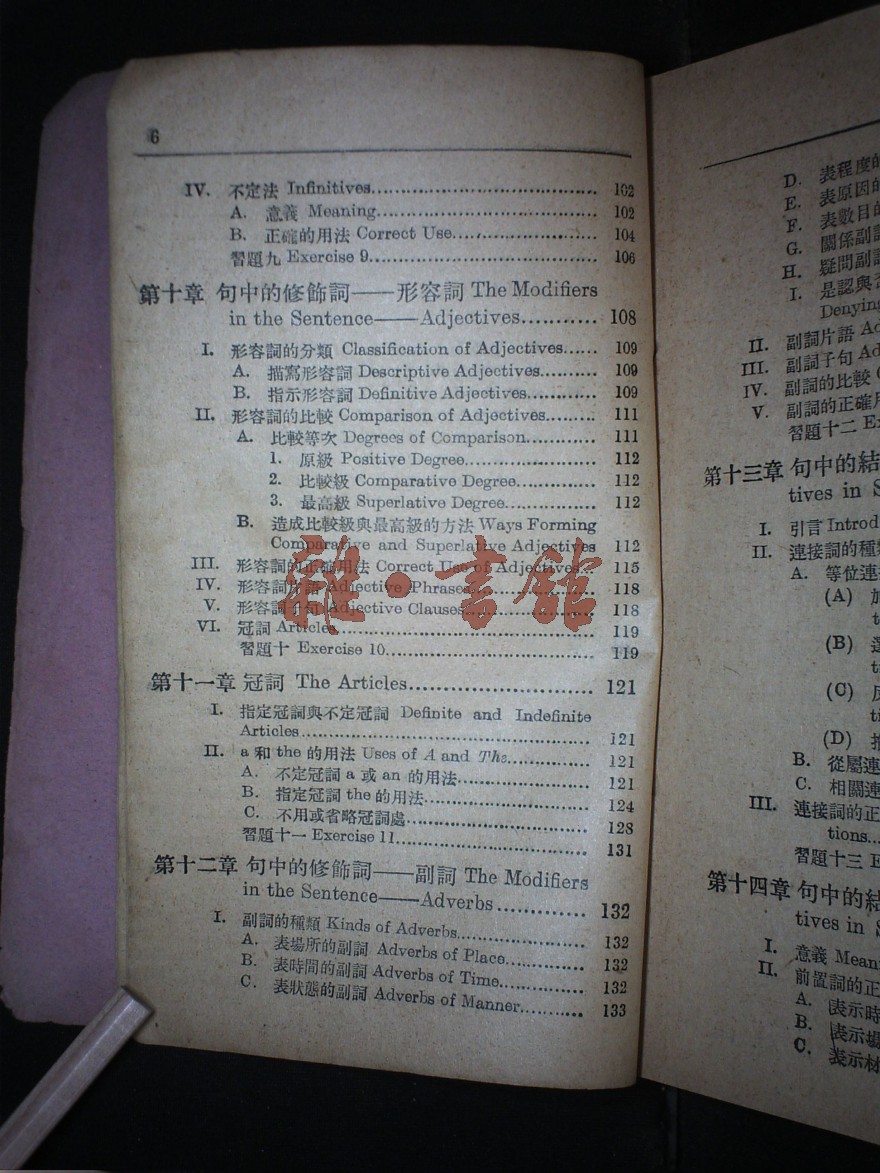 6
IV. 不定法 Infinitives 102
A. 意義 Meaning 102
B. 正確的用法 Correct Use 104
習題九 Exercise 9 106
第十章 句中的修飾詞——形容詞 The Modifiers
in the Sentence——Adjectives 108
I. 形容詞的分類 Classification of Adjectives 109
A. 描寫形容詞 Descriptive Adjectives 109
B. 指示形容詞 Definitive Adjectives 109
II. 形容詞的比較 Comparison of Adjectives 111
A. 比較等次 Degrees of Comparison 111
1. 原級 Positive Degree 112
2. 比較級 Comparative Degree 112
3. 最高級 Superlative Degree 112
B. 造成比較級與最高級的方法 Ways Forming
Comparative and Superlative Adjectives 112
III. 形容詞的正確用法 Correct Use of Adjectives 115
IV. 形容詞片語 Adjective Phrases 118
V. 形容詞子句 Adjective Clauses 118
VI. 冠詞 Articles 119
習題十 Exercise 10 119
第十一章 冠詞 The Articles 121
I. 指定冠詞與不定冠詞 Definite and Indefinite
Articles 121
II. a 和 the 的用法 Uses of A and The 121
A. 不定冠詞 a 或 an 的用法 121
B. 指定冠詞 the 的用法 124
C. 不用或省略冠詞處 128
習題十一 Exercise 11 131
第十二章 句中的修飾詞——副詞 The Modifiers
in the Sentence——Adverbs 132
I. 副詞的種類 Kinds of Adverbs 132
A. 表場所的副詞 Adverbs of Place 132
B. 表時間的副詞 Adverbs of Time 132
C. 表狀態的副詞 Adverbs of Manner 133
雜·書館
D. 表程度的
E. 表原因的
F. 表數目的
G. 關係副詞
H. 疑問副詞
I. 是認與
Denying
II. 副詞片語
III. 副詞子句
IV. 副詞的比較
V. 副詞的正確
習題十二
第十三章 句中的結
tives in
I. 引言
II. 連接詞的種類
A. 等位連
(A)
(B)
(C)
(D)
B. 從屬連
C. 相關連
III. 連接詞的正
tions
習題十三
第十四章 句中的結
tives in
I. 意義
II. 前置詞的正
A. 表示時
B. 表示場
C. 表示材